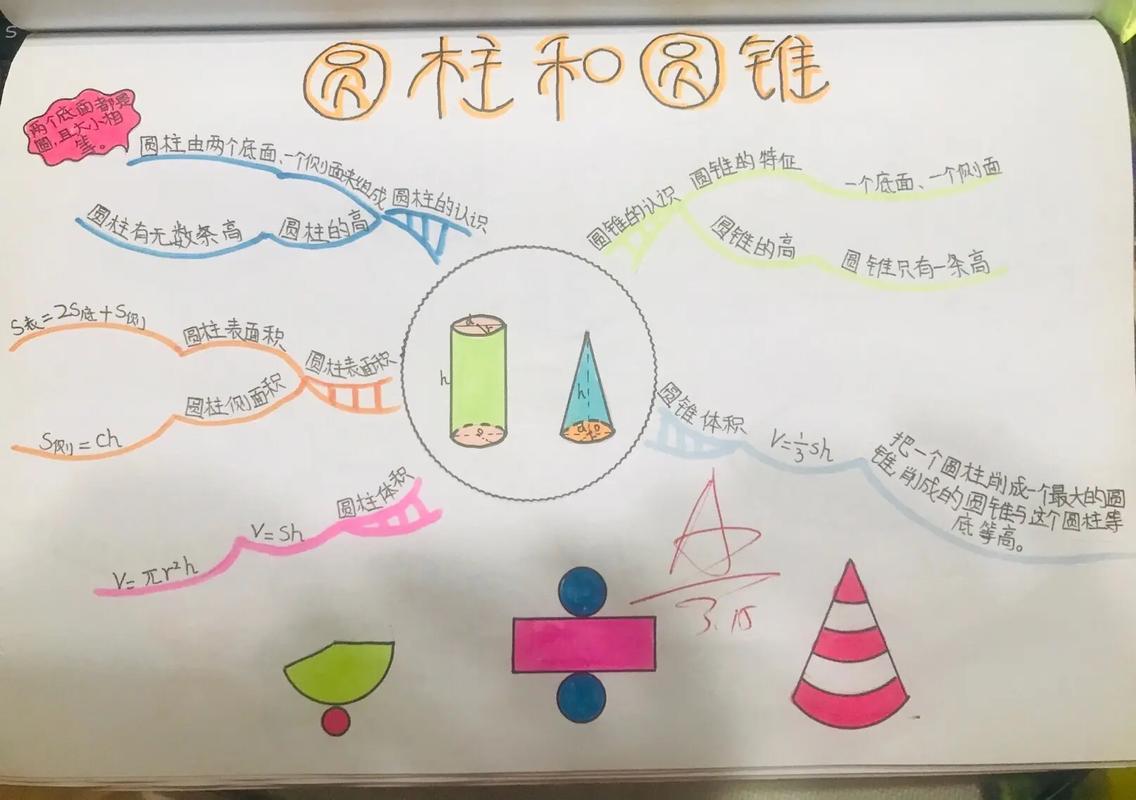 圆柱和圆锥
两个底面都是
圆,且大小相
等。
圆柱由两个底面、一个侧面来组成
圆柱的认识
圆柱有无数条高
圆柱的高
圆锥的认识
圆锥的特征
一个底面、一个侧面
圆锥的高
圆锥只有一条高
S表=2S底+S侧
圆柱表面积
圆柱表面积
圆柱侧面积
S侧=Ch
圆柱体积
V=Sh
V=πr²h
h
h
圆锥体积
V=⅓sh
把一个圆柱削成一个最大的圆
锥,削成的圆锥与这个圆柱等
底等高。
A
3.15